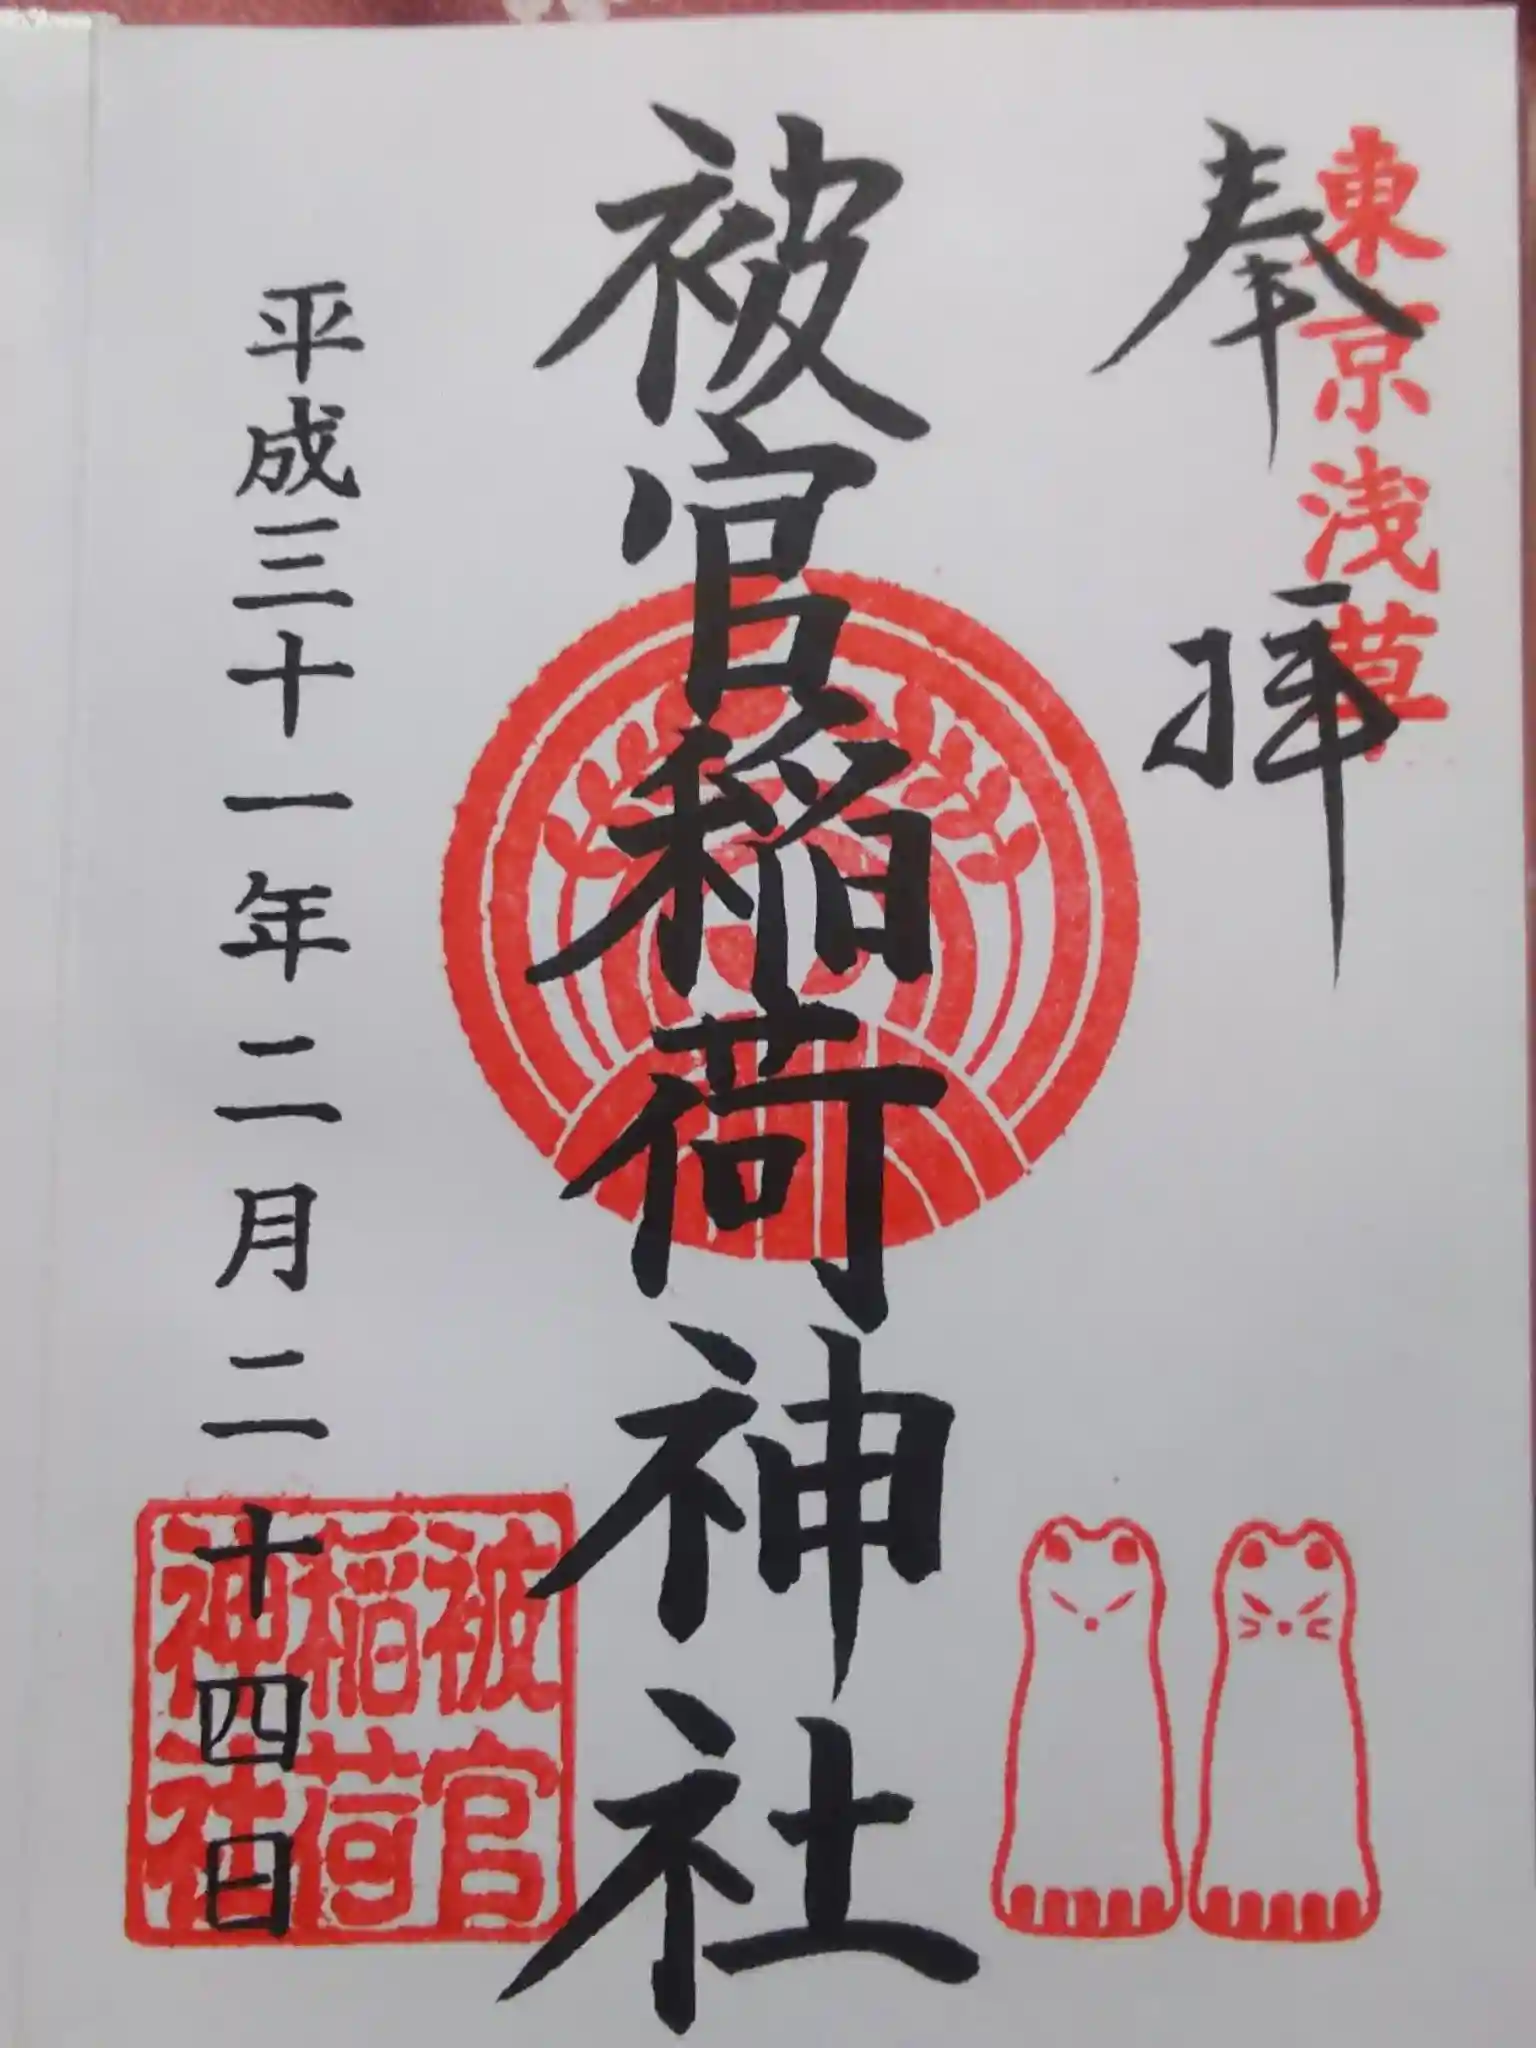 東京浅草
奉拝
被官稲荷神社
平成三十一年二月二十四日
被官
稲荷
神社